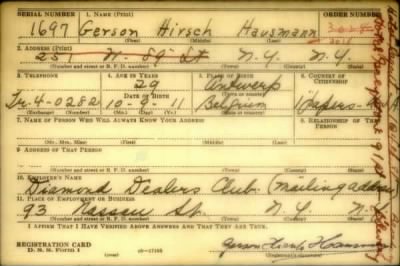 SERIAL NUMBER 1. NAME (Print) ORDER NUMBER
1697 Gerson Hirsch Hausmann
(First) (Middle) (Last)
2. ADDRESS (Print)
N. Y. N. Y.
(Number and street or R. F. D. number) (Town) (County) (State)
3. TELEPHONE 4. AGE IN YEARS 5. PLACE OF BIRTH 6. COUNTRY OF CITIZENSHIP
29 Antwerp
DATE OF BIRTH
Tr. 4-0282 10-9-11 Belgium
(Exchange) (Number) (Mo.) (Day) (Yr.) (State or country)
7. NAME OF PERSON WHO WILL ALWAYS KNOW YOUR ADDRESS 8. RELATIONSHIP OF THAT PERSON
(Mr., Mrs., Miss) (First) (Middle) (Last)
9. ADDRESS OF THAT PERSON
(Number and street or R. F. D. number) (Town) (County) (State)
10. EMPLOYER'S NAME
Diamond Dealers Club. (mailing address
11. PLACE OF EMPLOYMENT OR BUSINESS
93 Nassau St. N. Y. N. Y.
(Number and street or R. F. D. number) (Town) (County) (State)
I AFFIRM THAT I HAVE VERIFIED ABOVE ANSWERS AND THAT THEY ARE TRUE.
REGISTRATION CARD
D. S. S. Form 1
Gerson Hirsch Hausmann
(Registrant's signature)